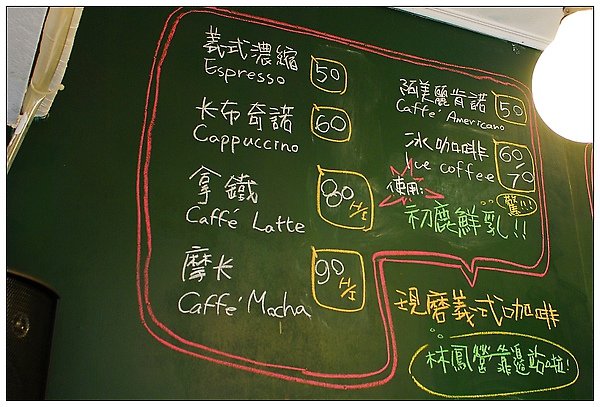 義式濃縮
Espresso
50
卡布奇諾
Cappuccino
60
拿鐵
Caffé Latte
80 H/I
摩卡
Caffé Mocha
90 H/I
阿美麗肯諾
Caffé Americano
50
冰咖啡
Ice coffee
60/70
使用:
初鹿鮮乳!!
驚!!
現磨義式咖啡
林鳳營靠邊站啦!